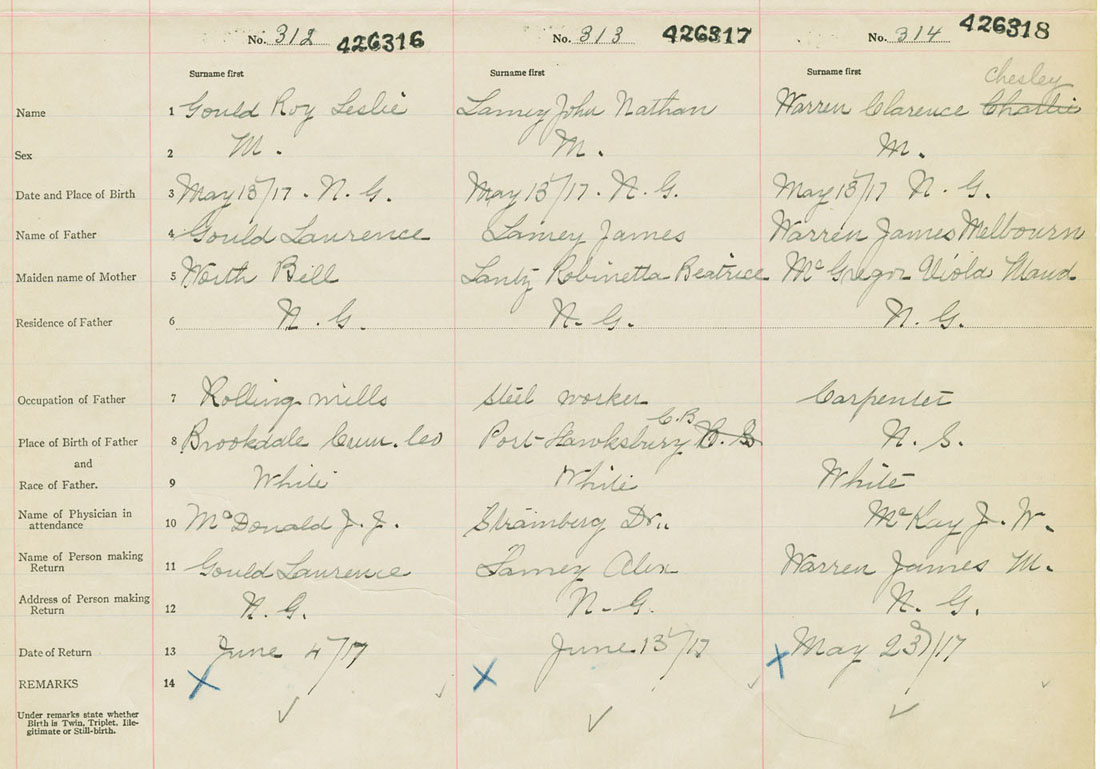 No. 312 426316 No. 313 426317 No. 314 426318
Surname first Surname first Surname first Chesley
Name 1 Gould Roy Leslie Lamey John Nathan Warren Clarence
Sex 2 M. M. M.
Date and Place of Birth 3 May 13/17. N. G. May 13/17. N. G. May 13/17 N. G.
Name of Father 4 Gould Laurence Lamey James Warren James Melbourn
Maiden name of Mother 5 Worth Bell Lantz Robinetta Beatrice McGregor Viola Maud
Residence of Father 6 N. G. N. G. N. G.
Occupation of Father 7 Rolling mills Steel worker Carpenter
C.B
Place of Birth of Father 8 Brookdale Cum. Co Port Hawksbury N. S.
and
Race of Father. 9 White White White
Name of Physician in 10 McDonald J. J. Stramberg Dr. McKay J. W.
attendance
Name of Person making 11 Gould Laurence Lamey Alex Warren James M.
Return
Address of Person making 12 N. G. N. G. N. G.
Return
Date of Return 13 June 4/17 June 13/17 May 23/17
REMARKS 14
Under remarks state whether
Birth is Twin, Triplet, Ille-
gitimate or Still-birth.